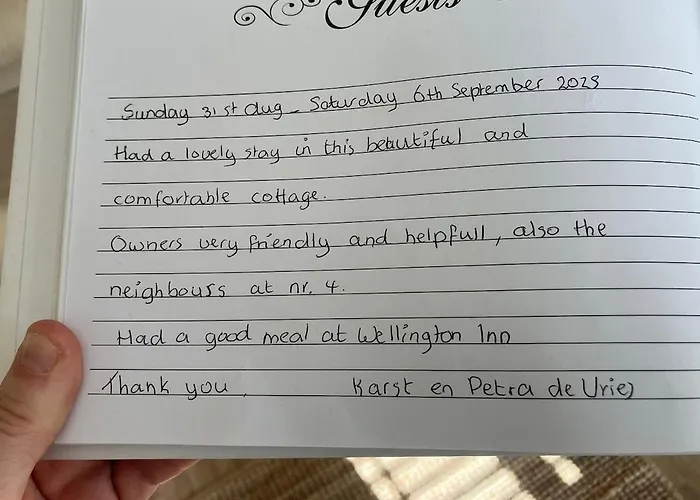 Guests
Sunday 31st Aug - Saturday 6th September 2025
Had a lovely stay in this beautiful and
comfortable cottage.
Owners very friendly and helpfull, also the
neighbours at nr. 4.
Had a good meal at Wellington Inn
Thank you, Karst en Petra de Vries